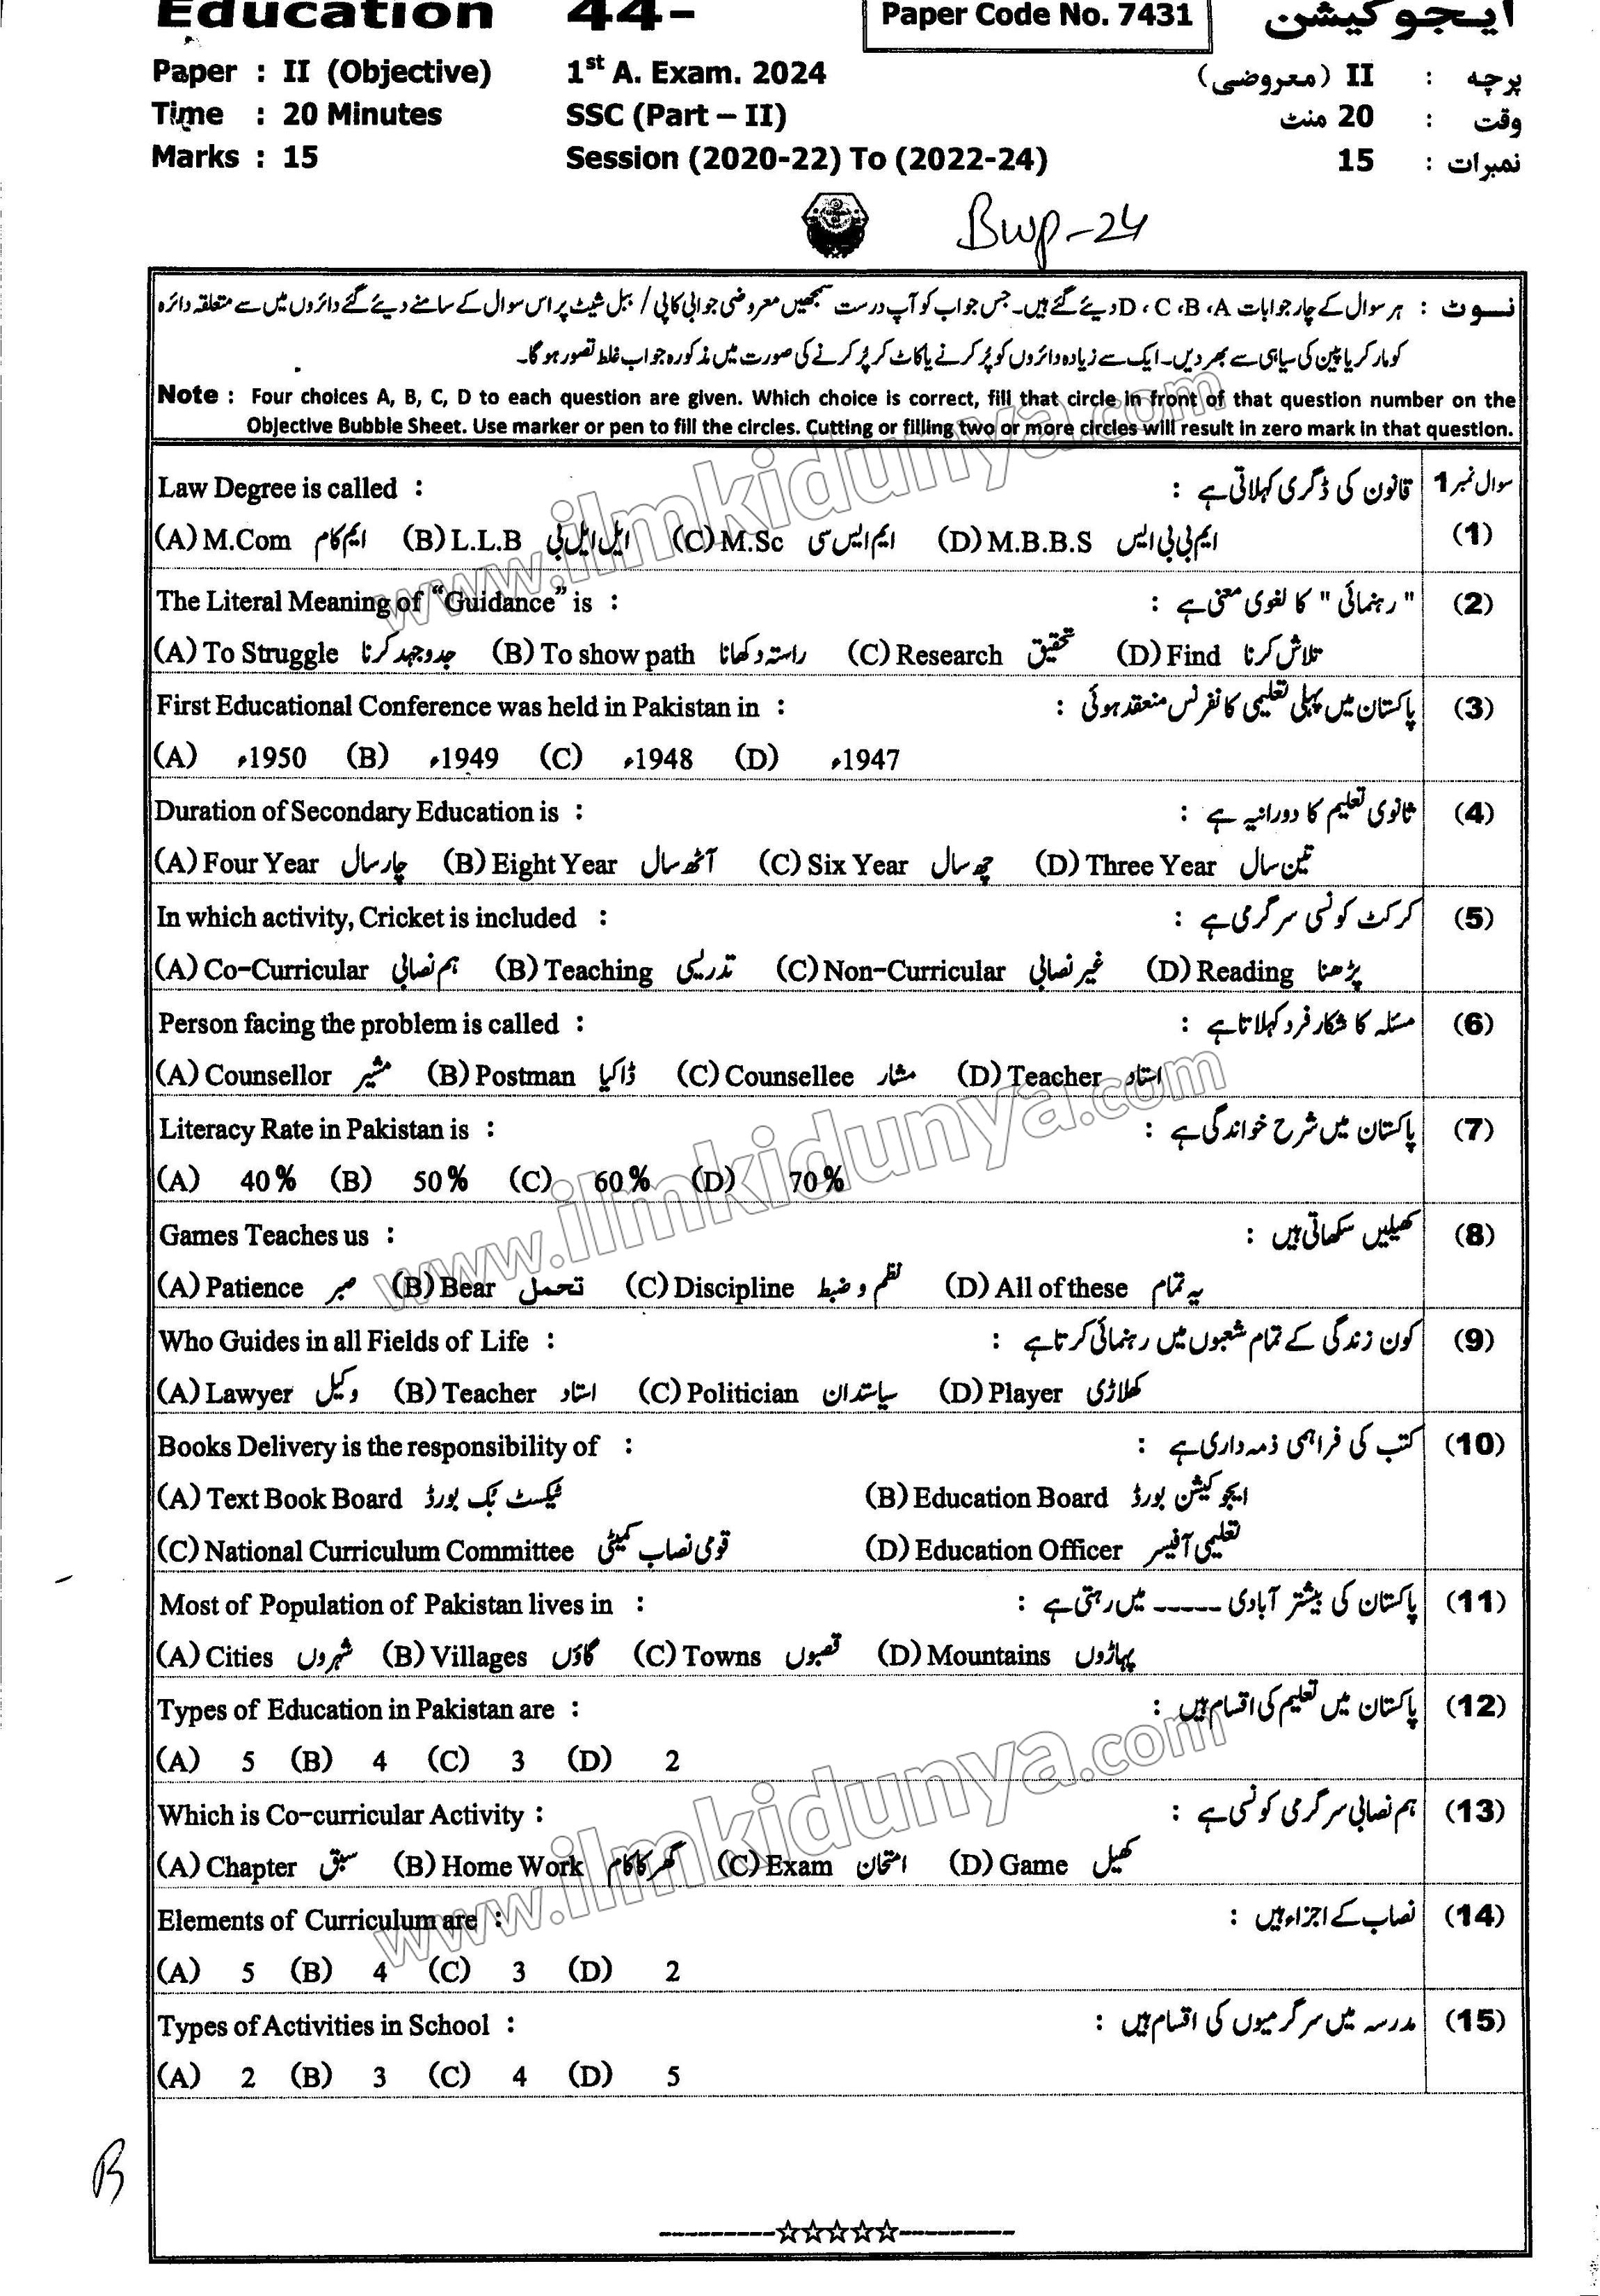 Education 44- Paper Code No. 7431 ایجوکیشن
Paper : II (Objective) 1st A. Exam. 2024 پرچہ : II (معروضی)
Time : 20 Minutes SSC (Part – II) وقت : 20 منٹ
Marks : 15 Session (2020-22) To (2022-24) نمبرات : 15
Bwp-24
نوٹ : ہر سوال کے چار جوابات A، B، C، D دیئے گئے ہیں۔ جس جواب کو آپ درست سمجھیں معروضی جوابی کاپی / ببل شیٹ پر اس سوال کے سامنے دیئے گئے دائروں میں سے متعلقہ دائرہ
کو مارکر یا پین کی سیاہی سے بھر دیں۔ ایک سے زیادہ دائروں کو پُر کرنے یا کاٹ کر پُر کرنے کی صورت میں مذکورہ جواب غلط تصور ہوگا۔
Note : Four choices A, B, C, D to each question are given. Which choice is correct, fill that circle in front of that question number on the
Objective Bubble Sheet. Use marker or pen to fill the circles. Cutting or filling two or more circles will result in zero mark in that question.
Law Degree is called : قانون کی ڈگری کہلاتی ہے : سوال نمبر 1
(A) M.Com ایم کام (B) L.L.B ایل ایل بی (C) M.Sc ایم ایس سی (D) M.B.B.S ایم بی بی ایس (1)
The Literal Meaning of “Guidance” is : "رہنمائی" کا لغوی معنی ہے : (2)
(A) To Struggle جدوجہد کرنا (B) To show path راستہ دکھانا (C) Research تحقیق (D) Find تلاش کرنا
First Educational Conference was held in Pakistan in : پاکستان میں پہلی تعلیمی کانفرنس منعقد ہوئی : (3)
(A) ء1950 (B) ء1949 (C) ء1948 (D) ء1947
Duration of Secondary Education is : ثانوی تعلیم کا دورانیہ ہے : (4)
(A) Four Year چار سال (B) Eight Year آٹھ سال (C) Six Year چھ سال (D) Three Year تین سال
In which activity, Cricket is included : کرکٹ کونسی سرگرمی ہے : (5)
(A) Co-Curricular ہم نصابی (B) Teaching تدریسی (C) Non-Curricular غیر نصابی (D) Reading پڑھنا
Person facing the problem is called : مسئلہ کا شکار فرد کہلاتا ہے : (6)
(A) Counsellor مشیر (B) Postman ڈاکیا (C) Counsellee مشار (D) Teacher استاد
Literacy Rate in Pakistan is : پاکستان میں شرح خواندگی ہے : (7)
(A) 40% (B) 50% (C) 60% (D) 70%
Games Teaches us : کھیلیں سکھاتی ہیں : (8)
(A) Patience صبر (B) Bear تحمل (C) Discipline نظم و ضبط (D) All of these یہ تمام
Who Guides in all Fields of Life : کون زندگی کے تمام شعبوں میں رہنمائی کرتا ہے : (9)
(A) Lawyer وکیل (B) Teacher استاد (C) Politician سیاستدان (D) Player کھلاڑی
Books Delivery is the responsibility of : کتب کی فراہمی ذمہ داری ہے : (10)
(A) Text Book Board ٹیکسٹ بک بورڈ (B) Education Board ایجوکیشن بورڈ
(C) National Curriculum Committee قومی نصاب کمیٹی (D) Education Officer تعلیمی آفیسر
Most of Population of Pakistan lives in : پاکستان کی بیشتر آبادی ----- میں رہتی ہے : (11)
(A) Cities شہروں (B) Villages گاؤں (C) Towns قصبوں (D) Mountains پہاڑوں
Types of Education in Pakistan are : پاکستان میں تعلیم کی اقسام ہیں : (12)
(A) 5 (B) 4 (C) 3 (D) 2
Which is Co-curricular Activity : ہم نصابی سرگرمی کونسی ہے : (13)
(A) Chapter سبق (B) Home Work گھر کا کام (C) Exam امتحان (D) Game کھیل
Elements of Curriculum are : نصاب کے اجزاء ہیں : (14)
(A) 5 (B) 4 (C) 3 (D) 2
Types of Activities in School : مدرسہ میں سرگرمیوں کی اقسام ہیں : (15)
(A) 2 (B) 3 (C) 4 (D) 5
B
www.ilmkidunya.com
www.ilmkidunya.com
www.ilmkidunya.com